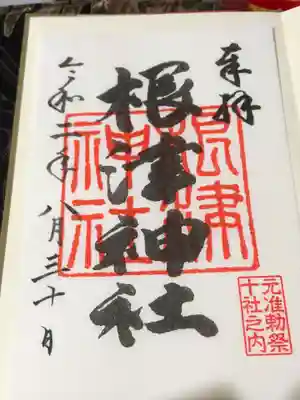 奉拝
根津神社
令和二年八月三十日
根津
神社
元准勅祭
十社之内